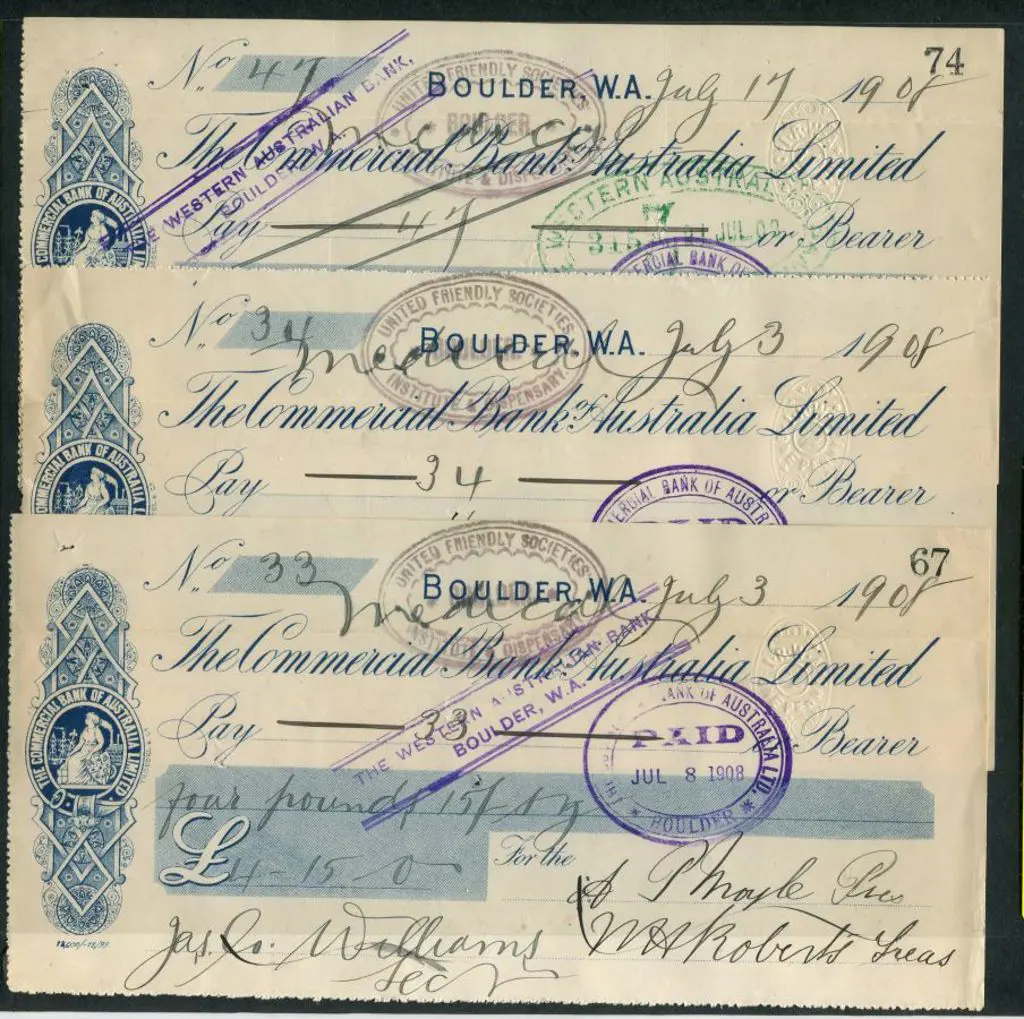 74
No 47 BOULDER, W.A. July 17 1908
UNITED FRIENDLY SOCIETIES
BOULDER
THE WESTERN AUSTRALIAN BANK,
BOULDER, W.A.
Medical
The Commercial Bank of Australia Limited
WESTERN AUSTRALIAN
Pay 47 or Bearer
COMMERCIAL BANK OF AUSTRALIA
No 34 BOULDER, W.A. July 3 1908
UNITED FRIENDLY SOCIETIES
INSTITUTE & DISPENSARY
Medical
The Commercial Bank of Australia Limited
Pay 34 or Bearer
COMMERCIAL BANK OF AUSTRALIA
COMMERCIAL BANK OF AUSTR
67
No 33 BOULDER, W.A. July 3 1908
UNITED FRIENDLY SOCIETIES
INSTITUTE & DISPENSARY
Medical
The Commercial Bank of Australia Limited
THE WESTERN AUSTRALIAN BANK
BOULDER, W.A.
Pay 33 Bearer
THE COMMERCIAL BANK OF AUSTRALIA LIMITED
BANK OF AUSTRALIA LTD.
PAID
JUL 8 1908
BOULDER
four pounds 15/-
£ 4-15-0 For the
A P Moyle Pres
Jas. Co. Williams W H Roberts Treas
Sec